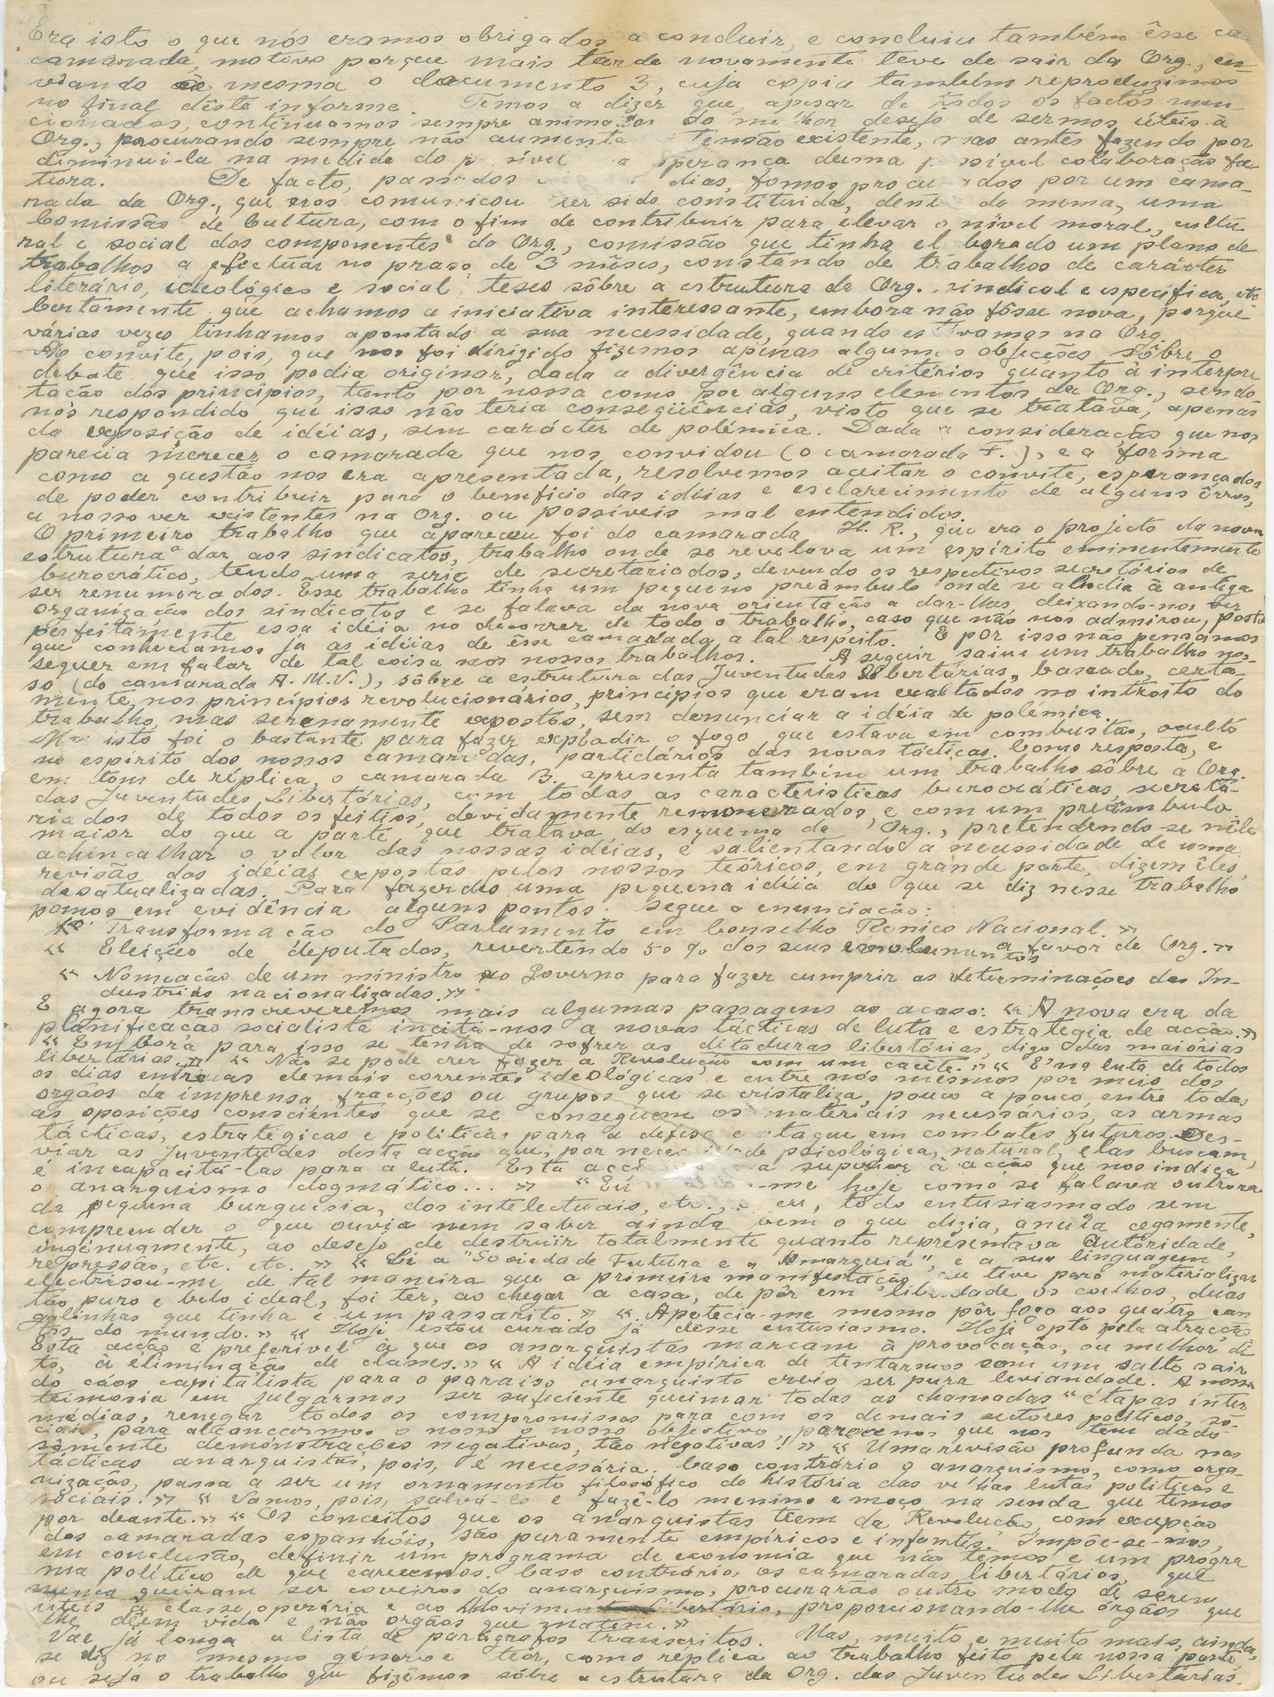 Era isto o que nós eramos obrigados a concluir, e concluiu também êsse ca-
camarada, motivo porque mais tarde novamente teve de sair da Org., en
viando à mesma o documento 3, cuja copia também reproduzimos
no final dêste informe Temos a dizer que, apesar de todos os factos men
cionados, continuamos sempre animados do melhor desejo de sermos úteis à
Org., procurando sempre não aumentar tensão existente, mas antes fazendo por
diminui-la na medida do possível esperança duma possível colaboração fu
tura. De facto, passados dias, fomos procurados por um cama-
rada da Org., que nos comunicou ter sido constituida, dentro da mesma, uma
Comissão de Cultura, com o fim de contribuir para elevar o nível moral, cultu
ral e social dos componentes da Org., comissão que tinha elaborado um plano de
trabalhos a efectuar no praso de 3 mêses, constando de trabalhos de carácter
literário, ideológico e social; teses sôbre a estrutura da Org. sindical e especifica, etc
Certamente que achamos a iniciativa interessante, embora não fôsse nova, porque
várias vezes tinhamos apontado a sua necessidade, quando estavamos na Org.
Ao convite, pois, que nos foi dirigido fizemos apenas algumas objecções sôbre o
debate que isso podia originar, dada a divergência de critérios quanto à interpre
tação dos princípios, tanto por nossa como por alguns elementos da Org., sendo-
nos respondido que isso não teria conseqüências, visto que se tratava, apenas
da exposição de idéias, sem carácter de polémica. Dada a consideração que nos
parecia merecer o camarada que nos convidou (o camarada F.), e a forma
como a questão nos era apresentada, resolvemos aceitar o convite, esperançados
de poder contribuir para o beneficio das idéias e esclarecimento de alguns êrros,
a nosso ver existentes na Org. ou possíveis mal entendidos.
O primeiro trabalho que apareceu foi do camarada H. R., que era o projecto da nova
estrutura a dar aos sindicatos, trabalho onde se revelava um espírito eminentemente
burocrático, tendo uma serie de secretariados, devendo os respetivos secretários de
ser renumerados. Esse trabalho tinha um pequeno preâmbulo onde se aludia à antiga
organização dos sindicatos e se falava da nova orientação a dar-lhes, deixando-nos ver
perfeitamente essa idéia no decorrer de todo o trabalho, caso que não nos admirou, posto
que conheciamos já as idéias de êsse camarada a tal respeito. E por isso não pensamos
sequer em falar de tal coisa nos nossos trabalhos. A seguir saiu um trabalho nos-
so (do camarada A. M. V.), sôbre a estrutura das Juventudes Libertárias, baseado, certa-
mente, nos princípios revolucionários, princípios que eram exaltados no introito do
trabalho, mas serenamente expostos, sem denunciar a idéia de polémica.
Mas isto foi o bastante para fazer explodir o fogo que estava em combustão, oculto
no espirito dos nossos camaradas, particiários das novas tácticas. Como resposta, e
em tom de réplica, o camarada B. apresenta também um trabalho sôbre a Org.
das Juventudes Libertárias, com todas as caracteristicas burocráticas, secreta-
riados de todos os feitios, devidamente remonerados e com um preâmbulo
maior do que a parte que tratava do esquema da Org., pretendendo-se nêle
achincalhar o valor das nossas idéias, e salientando a necessidade de uma
revisão das idéias expostas pelos nossos teóricos, em grande parte, dizem êles,
desatualizadas. Para fazerdes uma pequena idéia do que se diz nesse trabalho
pomos em evidência alguns pontos. Segue a enunciação:
Transformação do Parlamento em Conselho Técnico Nacional.»
« Eleição de deputados, revertendo 50% dos seus emolumentos a favor de Org.»
« Nomeação de um ministro ao Governo para fazer cumprir as determinações das In-
dustrias nacionalizadas.»
E agora transcreveremos mais algumas passagens ao acaso: «A nova era da
planificação socialista incita-nos a novas tácticas de luta e estratégia de acção.»
«Embora para isso se tenha de sofrer as ditaduras libertárias, digo das maiorias
libertárias.» «Não se pode crer fazer a Revolução com um cacête.» «E' na luta de todos
os dias entre as demais correntes ideológicas e entre nós mesmos por meio dos
orgãos da imprensa, fracções ou grupos que se cristaliza, pouco a pouco, entre todas
as oposições conscientes que se conseguem os materiais necessários, as armas
tácticas, estratégicas e politicas para a defesa e ataque em combates futuros. Des-
viar as Juventudes desta acção que, por necessidade psicológica, natural, elas buscam,
é incapacitá-las para a luta. Esta acção superior à acção que nos indica
o anarquismo dogmático...» «Eu -me hoje como se falava outrora
da pequena burguesia, dos intelectuais, etc., e eu, todo entusiasmado sem
compreender o que ouvia nem saber ainda bem o que dizia, anuía cegamente,
ingénuamente, ao desejo de destruir totalmente quanto representava Autoridade,
repressão, etc. etc.» «Li a "Sociedade Futura e a Anarquia", e a sua linguagem
electrisou-me de tal maneira que a primeira manifestação que tive para materializar
tão puro e belo ideal, foi ter, ao chegar a casa, de pôr em liberdade os coelhos, duas
galinhas que tinha e um passarito.» «Apetecia-me mesmo pôr fogo aos quatro can
tos do mundo.» «Hoje estou curado já desse entusiasmo. Hoje opto pela atracção
Esta acção é preferivel à que os anarquistas marcam à provocação, ou melhor di
to, à eliminação de classes.» «A idéia empírica de tentarmos com um salto sair
do cáos capitalista para o paraíso anarquista creio ser pura leviandade. A nossa
teimosia em julgarmos ser suficiente queimar todas as chamadas "étapas inter
médias, renegar todos os compromissos para com os demais sectores politicos, so-
ciais, para alcançarmos o nosso o nosso objectivo, parecenos que nos tem dado
sòmente demonstrações negativas, tão negativas!» «Uma revisão profunda nas
tácticas anarquistas, pois, é necessária. Caso contrário o anarquismo, como orga-
nização, passa a ser um ornamento filosófico da história das velhas lutas politicas e
sociais.» «Vamos, pois, salvá-lo e fazê-lo menino e moço na senda que temos
por deante.» «Os conceitos que os anarquistas teem da Revolução, com excepção
dos camaradas espanhóis, são puramente empíricos e infantis. Impõe-se-nos,
em conclusão, definir um programa de economia que não temos e um progra
ma politico de que carecemos. Caso contrário, os camaradas libertários, que
nunca queiram ser coveiros do anarquismo, procurarão outro modo de serem
úteis à classe operária e ao Movimento Libertário, proporcionando-lhe órgãos que
lhe dêem vida e não orgãos que matem.»
Vae já longa a lista de parágrafos transcritos. Mas, muito e muito mais, ainda,
se diz no mesmo género e teor, como réplica ao trabalho feito pela nossa parte
ou seja o trabalho que fizemos sôbre a estrutura da Org. das Juventudes Libertárias.